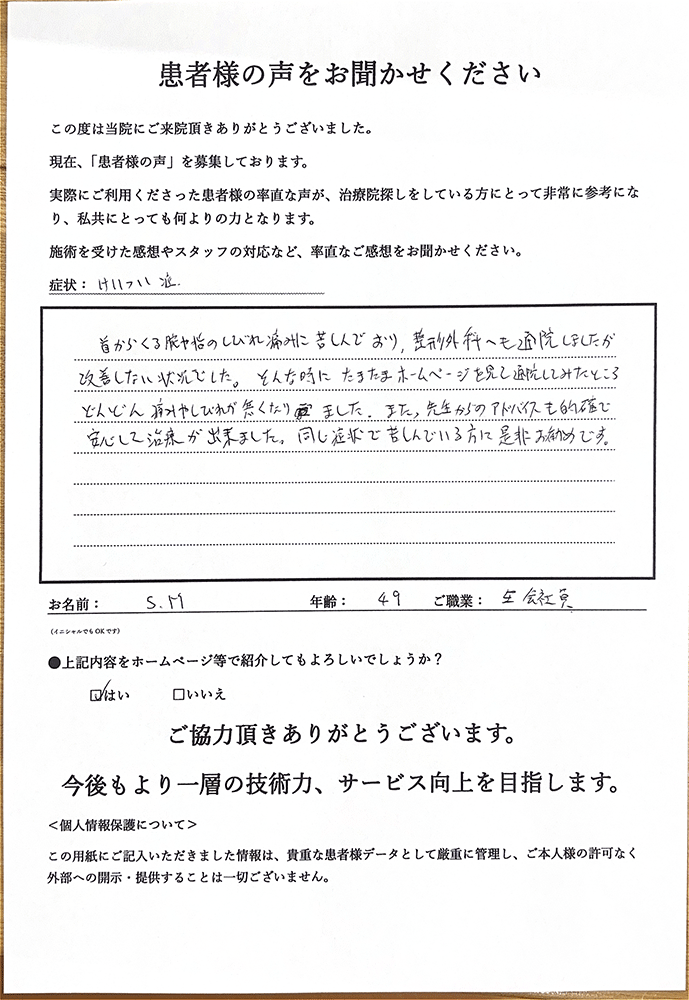 患者様の声をお聞かせください
この度は当院にご来院頂きありがとうございました。
現在、「患者様の声」を募集しております。
実際にご利用くださった患者様の率直な声が、治療院探しをしている方にとって非常に参考にな
り、私共にとっても何よりの力となります。
施術を受けた感想やスタッフの対応など、率直なご感想をお聞かせください。
症状: けいつい症
首からくる腕や指のしびれ痛みに苦しんでおり,整形外科へも通院しましたが
改善しない状況でした。そんな時にたまたまホームページを見て通院してみたところ
どんどん痛みやしびれが無くなりました.また,先生からのアドバイスも的確で
安心して治療が出来ました。同じ症状で苦しんでいる方に是非お勧めです。
お名前: S.M 年齢: 49 ご職業: 会社員
(イニシャルでもOKです)
●上記内容をホームページ等で紹介してもよろしいでしょうか?
☑はい □いいえ
ご協力頂きありがとうございます。
今後もより一層の技術力、サービス向上を目指します。
<個人情報保護について>
この用紙にご記入いただきました情報は、貴重な患者様データとして厳重に管理し、ご本人様の許可なく
外部への開示・提供することは一切ございません。